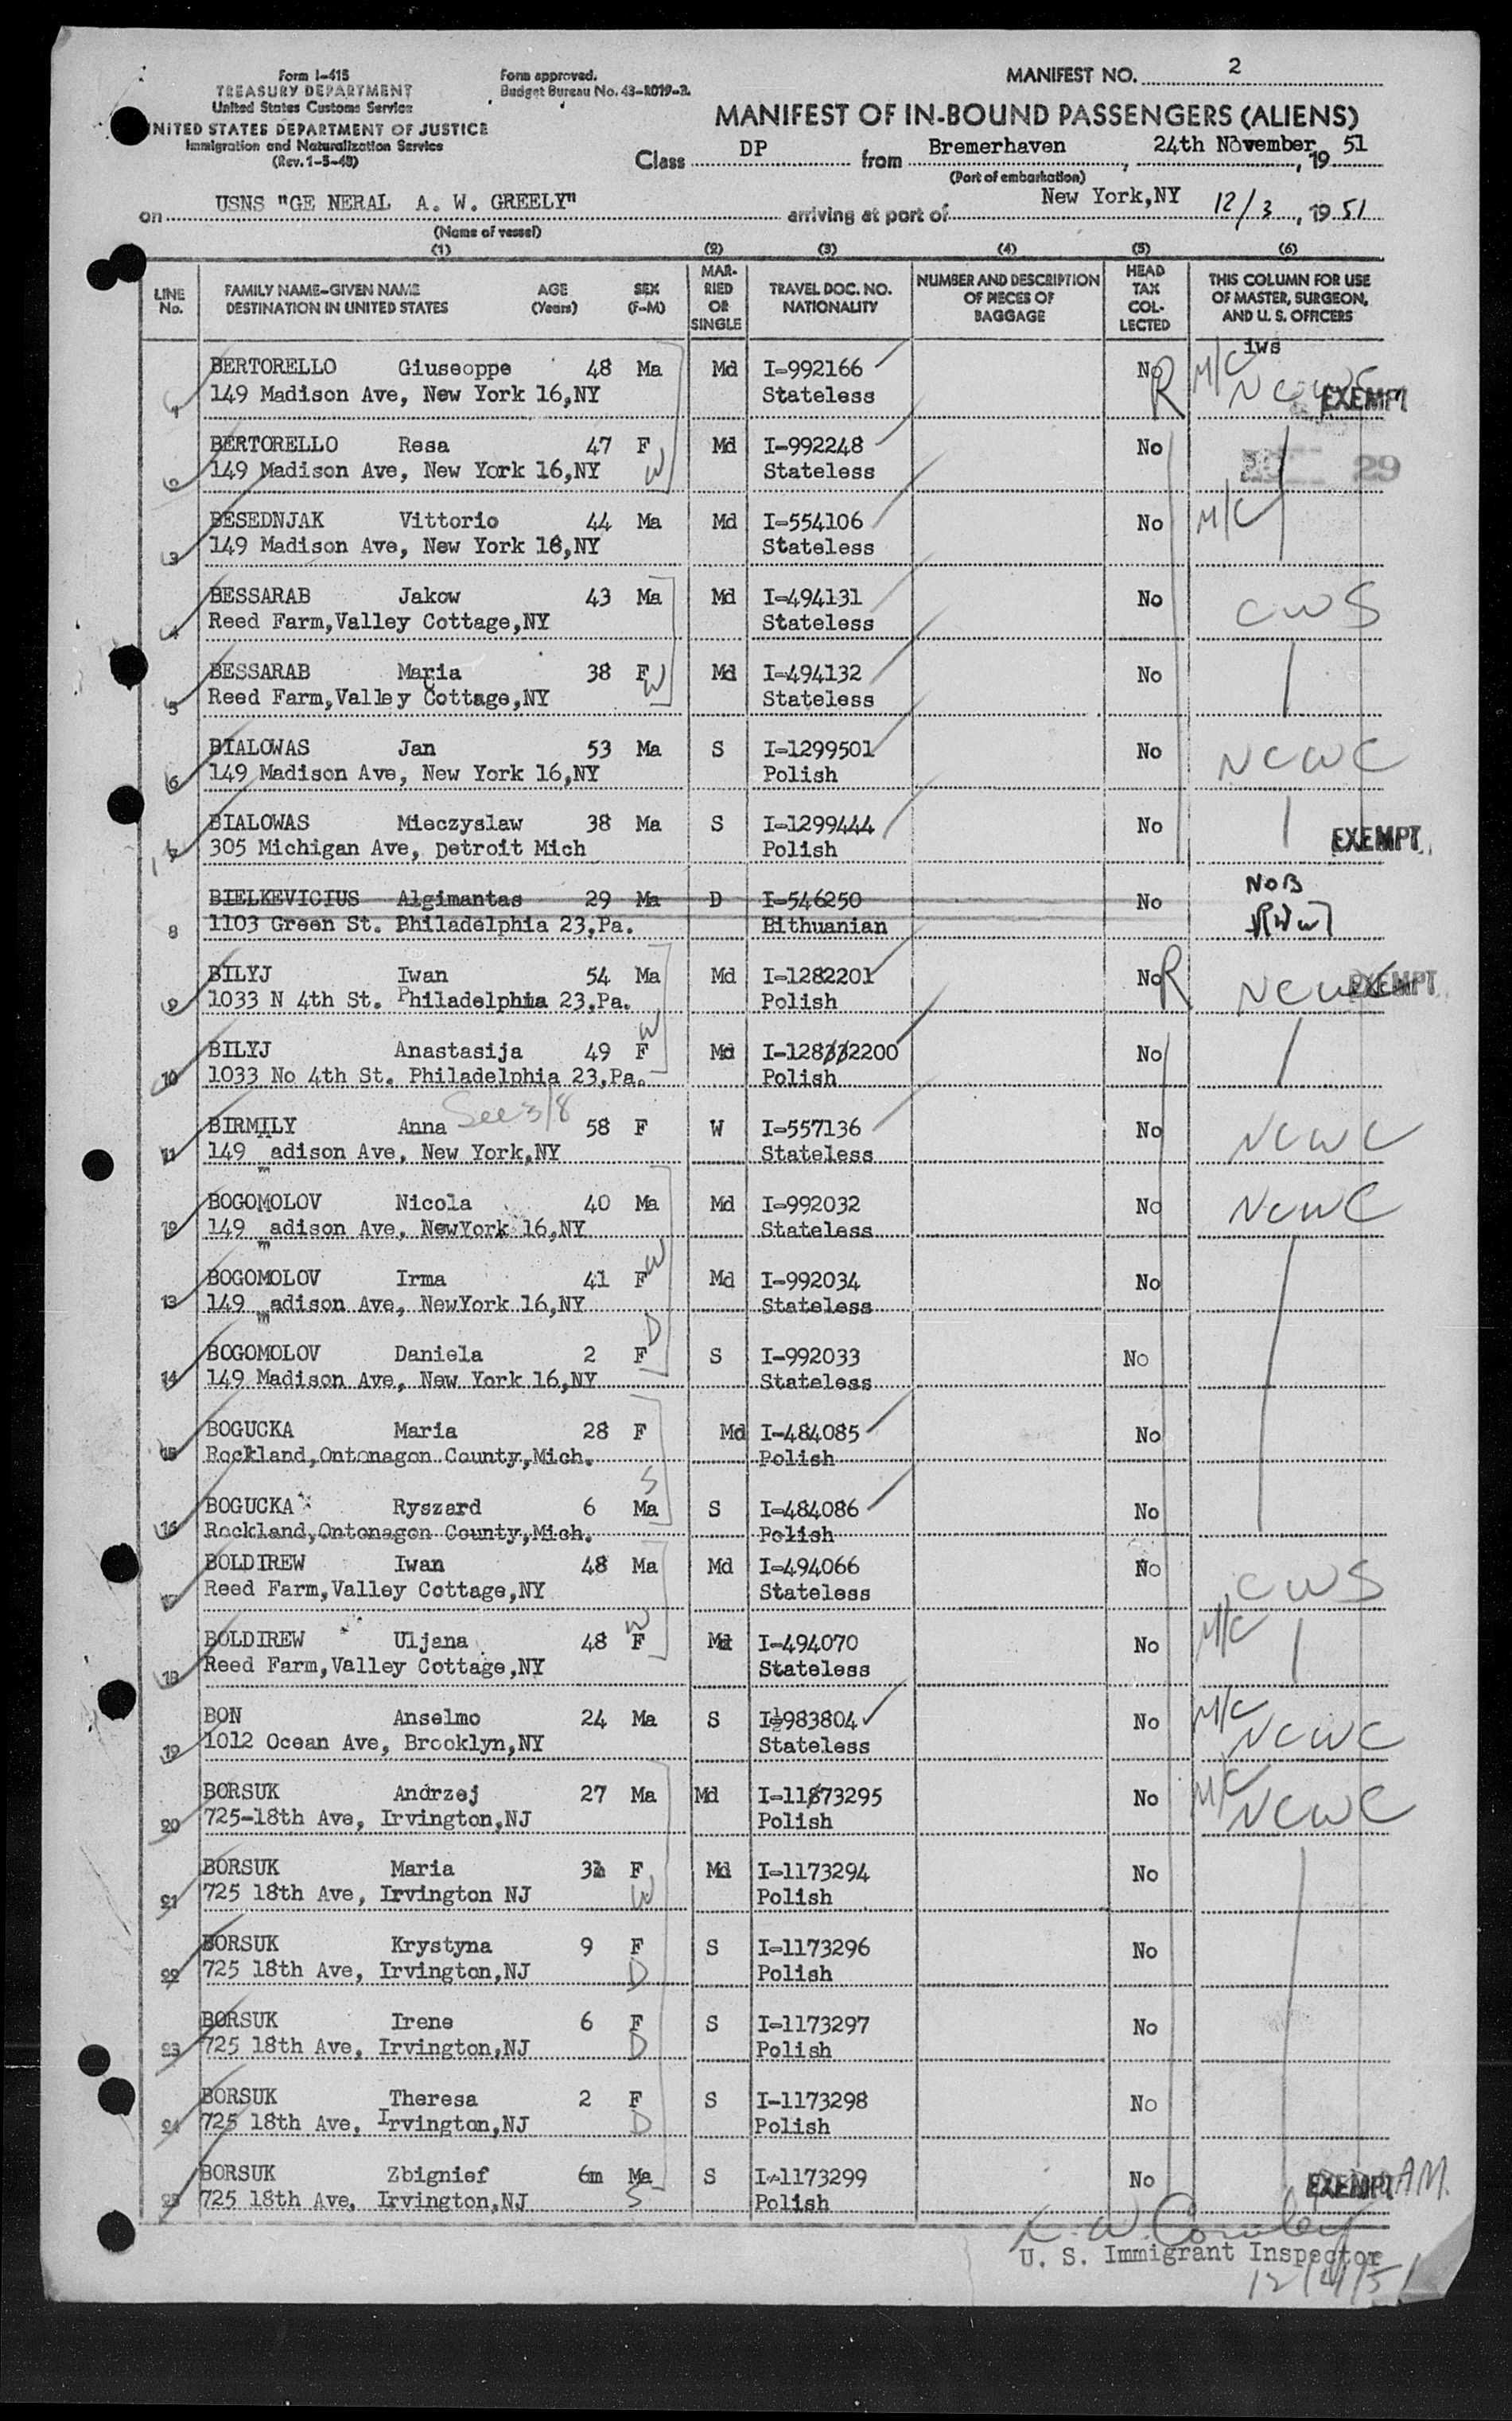 Form I-415
TREASURY DEPARTMENT
United States Customs Service
UNITED STATES DEPARTMENT OF JUSTICE
Immigration and Naturalization Service
(Rev. 1-5-48)
Form approved.
Budget Bureau No. 43-R019-2.
MANIFEST NO. 2
MANIFEST OF IN-BOUND PASSENGERS (ALIENS)
Class DP from Bremerhaven, 24th November, 1951
(Port of embarkation)
on USNS "GE NERAL A. W. GREELY" arriving at port of New York,NY 12/3, 1951
(Name of vessel)
(1) (2) (3) (4) (5) (6)
LINE No. FAMILY NAME-GIVEN NAME DESTINATION IN UNITED STATES AGE (Years) SEX (F-M) MARRIED OR SINGLE TRAVEL DOC. NO. NATIONALITY NUMBER AND DESCRIPTION OF PIECES OF BAGGAGE HEAD TAX COLLECTED THIS COLUMN FOR USE OF MASTER, SURGEON, AND U. S. OFFICERS
iws
1 BERTORELLO Giuseoppe 48 Ma Md I-992166 No R M/C NCWC
149 Madison Ave, New York 16,NY Stateless EXEMPT
2 BERTORELLO Resa 47 F W Md I-992248 No
149 Madison Ave, New York 16,NY Stateless 29
3 BESEDNJAK Vittorio 44 Ma Md I-554106 No M/C
149 Madison Ave, New York 16,NY Stateless
4 BESSARAB Jakow 43 Ma Md I-494131 No CWS
Reed Farm,Valley Cottage,NY Stateless
5 BESSARAB Maria 38 F W Md I-494132 No
Reed Farm,Valley Cottage,NY Stateless
6 BIALOWAS Jan 53 Ma S I-1299501 No NCWC
149 Madison Ave, New York 16,NY Polish
7 BIALOWAS Mieczyslaw 38 Ma S I-1299444 No
305 Michigan Ave, Detroit Mich Polish EXEMPT
8 BIELKEVICIUS Algimantas 29 Ma D I-546250 No NOB
1103 Green St. Philadelphia 23,Pa. Bithuanian
9 BILYJ Iwan 54 Ma Md I-1282201 No R NCWC EXEMPT
1033 N 4th St. Philadelphia 23,Pa. Polish
10 BILYJ Anastasija 49 F W Md I-128332200 No
1033 No 4th St. Philadelphia 23,Pa. Polish
See 3/8
11 BIRMILY Anna 58 F W I-557136 No NCWC
149 Madison Ave, New York,NY Stateless
12 BOGOMOLOV Nicola 40 Ma Md I-992032 No NCWC
149 madison Ave, NewYork 16,NY Stateless
13 BOGOMOLOV Irma 41 F W Md I-992034 No
149 madison Ave, NewYork 16,NY Stateless
14 BOGOMOLOV Daniela 2 F D S I-992033 No
149 Madison Ave, New York 16,NY Stateless
15 BOGUCKA Maria 28 F Md I-484085 No
Rockland,Ontonagon County,Mich. Polish
16 BOGUCKA Ryszard 6 Ma S S I-484086 No
Rockland,Ontonagon County,Mich. Polish
17 BOLDIREW Iwan 48 Ma Md I-494066 No CWS
Reed Farm,Valley Cottage,NY Stateless
18 BOLDIREW Uljana 48 F W Md I-494070 No M/C
Reed Farm,Valley Cottage,NY Stateless
19 BON Anselmo 24 Ma S I-983804 No M/C NCWC
1012 Ocean Ave, Brooklyn,NY Stateless
20 BORSUK Andrzej 27 Ma Md I-11873295 No M/C NCWC
725-18th Ave, Irvington,NJ Polish
21 BORSUK Maria F W Md I-1173294 No
725 18th Ave, Irvington NJ Polish
22 BORSUK Krystyna 9 F D S I-1173296 No
725 18th Ave, Irvington,NJ Polish
23 BORSUK Irene 6 F D S I-1173297 No
725 18th Ave, Irvington,NJ Polish
24 BORSUK Theresa 2 F D S I-1173298 No
725 18th Ave, Irvington,NJ Polish
25 BORSUK Zbignief 6m Ma S S I-1173299 No EXEMPT AM.
725 18th Ave, Irvington,NJ Polish
U. S. Immigrant Inspector